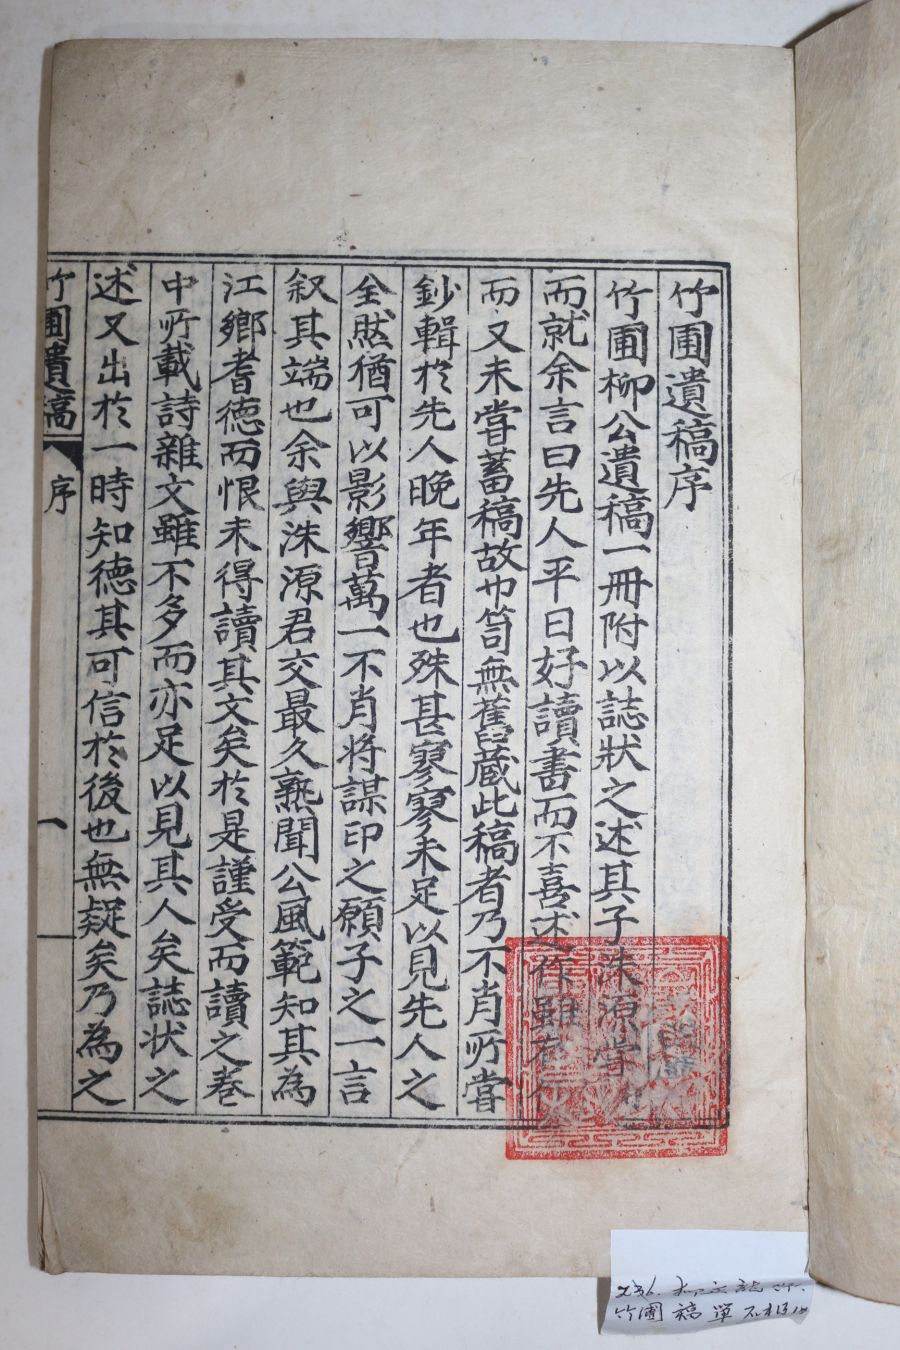 竹圃遺稿序
竹圃柳公遺稿一冊附以誌狀之述其子洙源嘗
而就余言曰先人平日好讀書而不喜述作雖在
而又未嘗蓄稿故巾笥無舊蔵此稿者乃不肖所嘗
鈔輯於先人晩年者也殊甚寥寥未足以見先人之
全然猶可以影響萬一不肖将謀印之願子之一言
叙其端也余與洙源君交最久熟聞公風範知其為
江鄉耆德而恨未得讀其文矣於是謹受而讀之巻
中所載詩雜文雖不多而亦足以見其人矣誌状之
述又出於一時知德其可信於後也無疑矣乃為之
竹圃遺稿 序 一
竹圃稿單